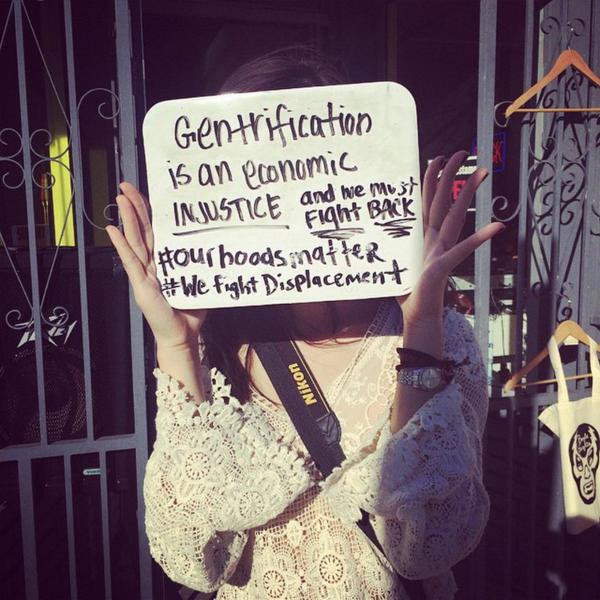 Gentrification
is an economic
INJUSTICE and we must
FIGHT BACK
#ourhoodsmatteR
#We Fight Displacement
NIKON